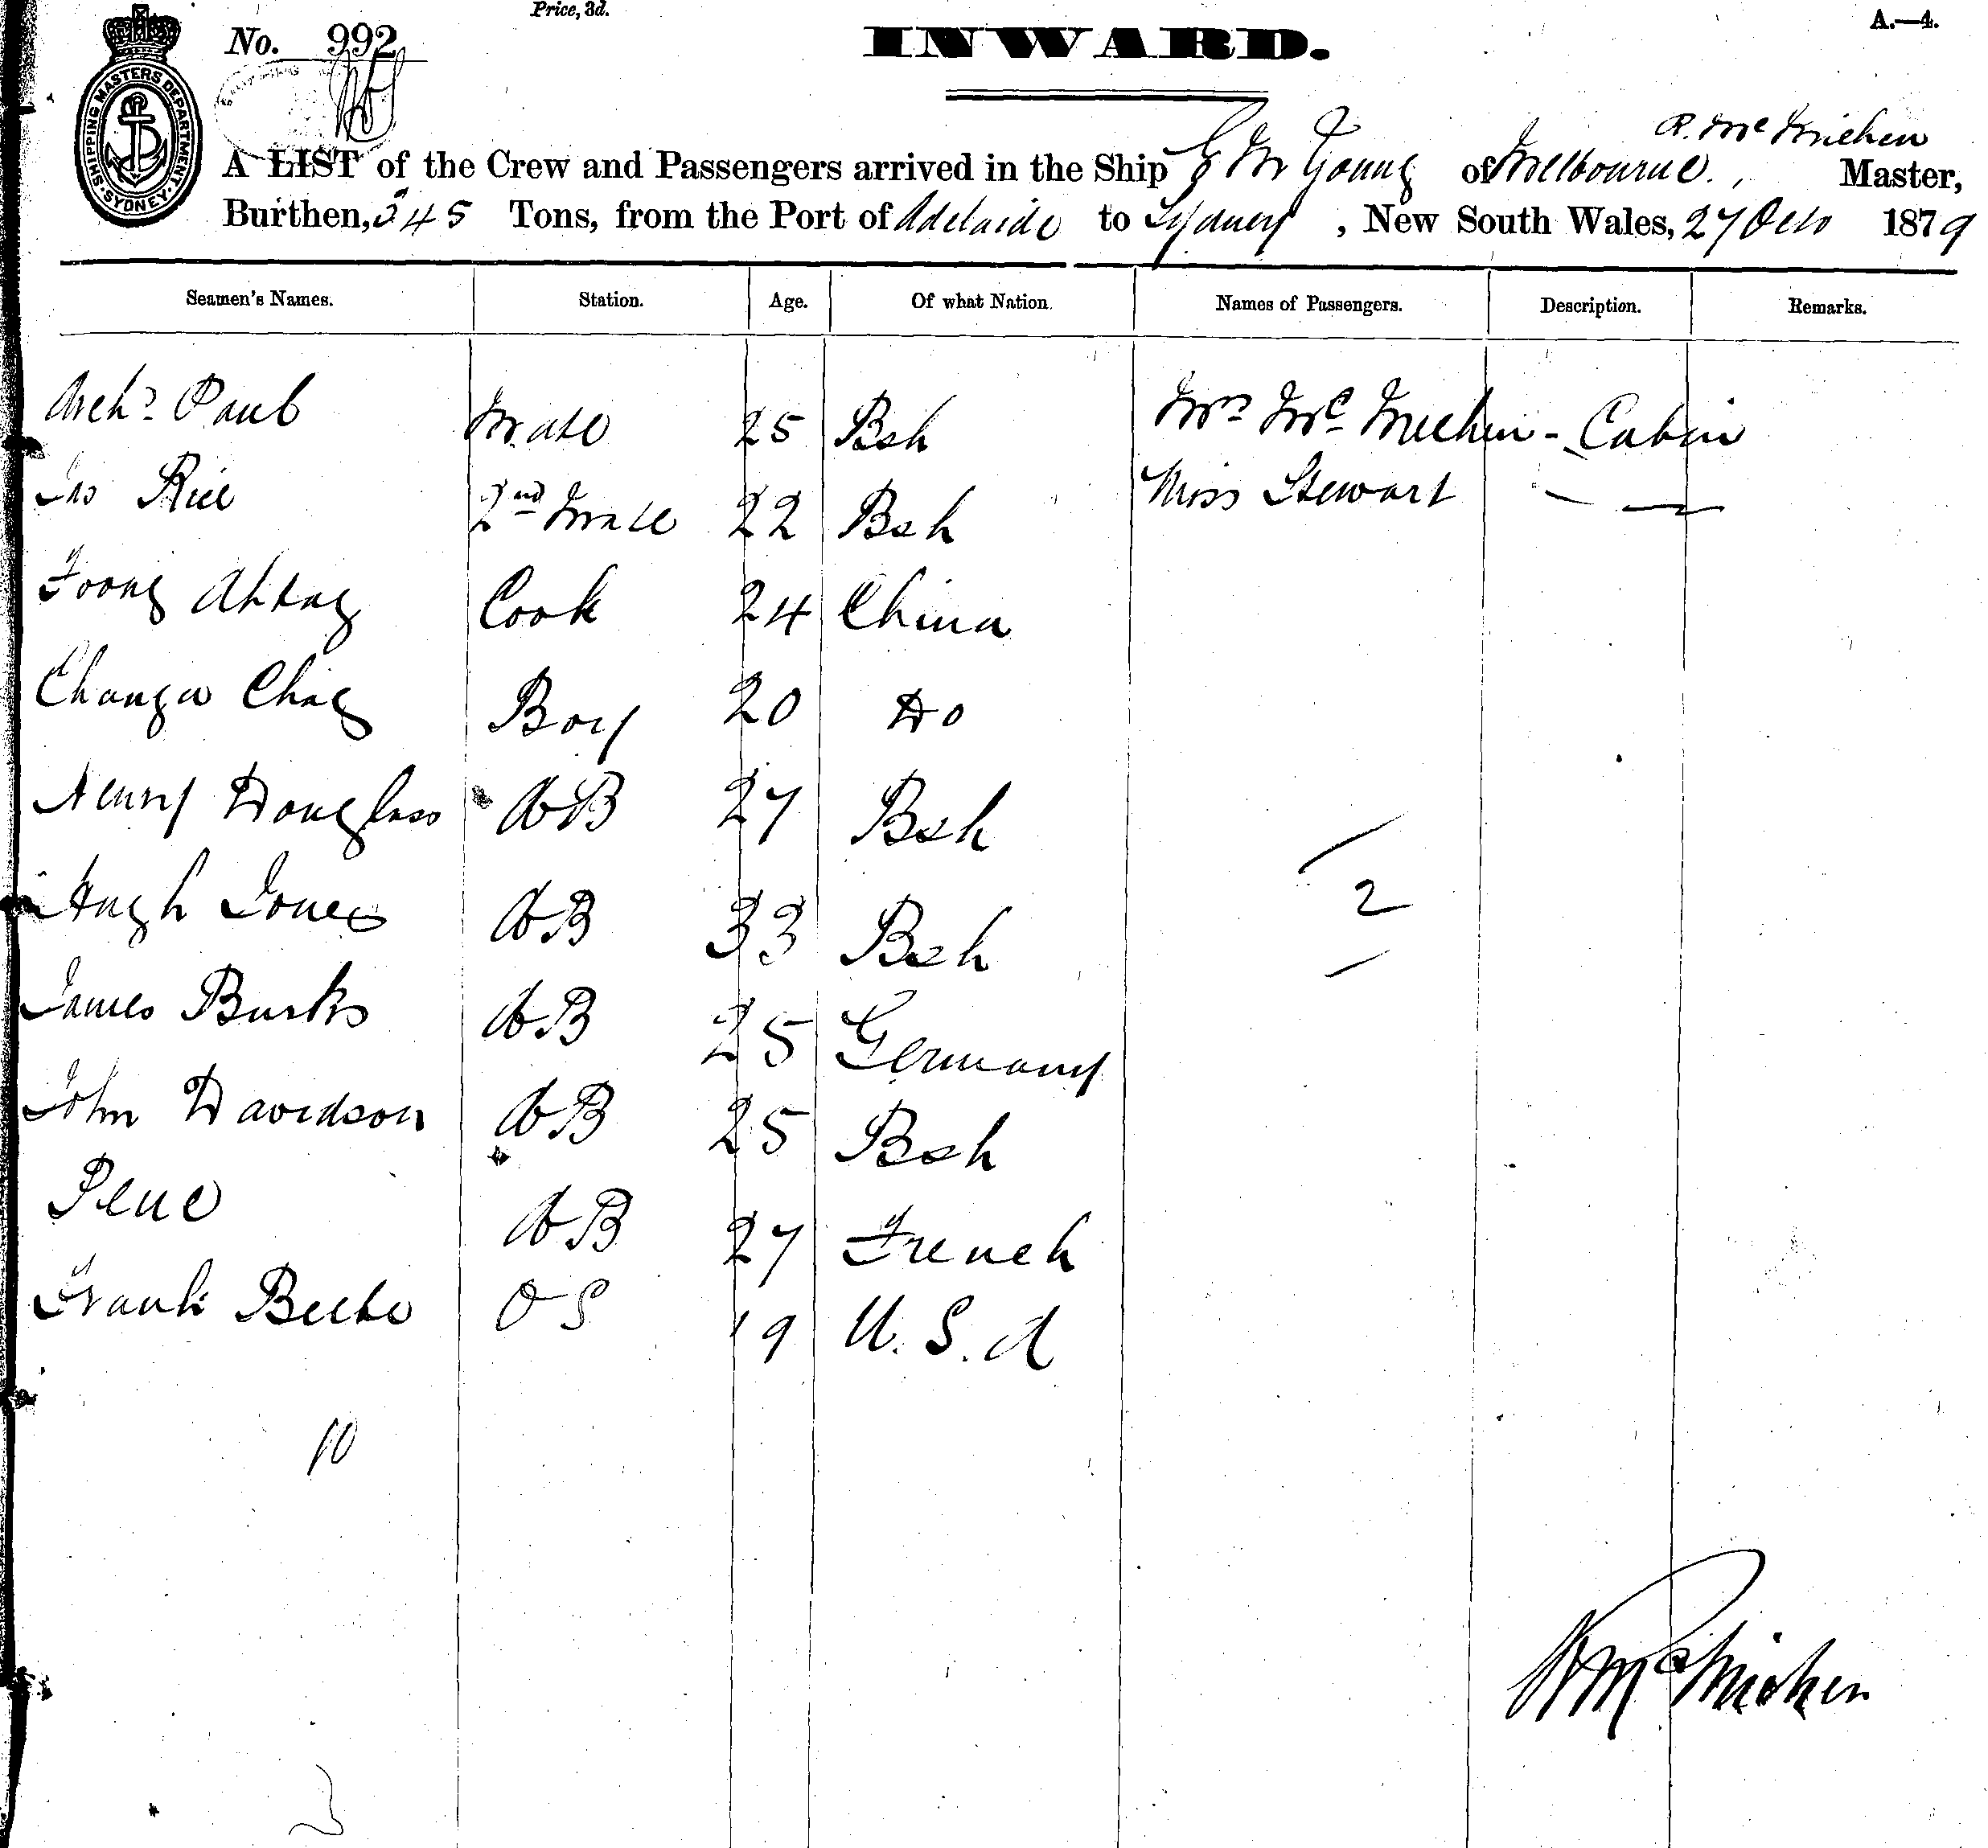 Price, 3d.
A.—4.
No. 992
INWARD.
SHIPPING MASTERS DEPARTMENT. SYDNEY
A LIST of the Crew and Passengers arrived in the Ship G M Young of Melbourne, R. Mc Michen Master,
Burthen, 345 Tons, from the Port of Adelaide to Sydney, New South Wales, 27 Oct 1879
Seamen's Names. Station. Age. Of what Nation. Names of Passengers. Description. Remarks.
Archd Paul Mate 25 Bsh Mrs Mc Michen - Cabin
Jas Rice 2nd Mate 22 Bsh Miss Stewart — —
Foong Cook 24 China
Boy 20 Do
Henry Douglass AB 27 Bsh
Hugh Jones AB 33 Bsh
2
James Burks AB 25 Germany
John Davidson AB 25 Bsh
Pene AB 27 French
Frank Beebe OS 19 U.S.A
10
R Mc Michen